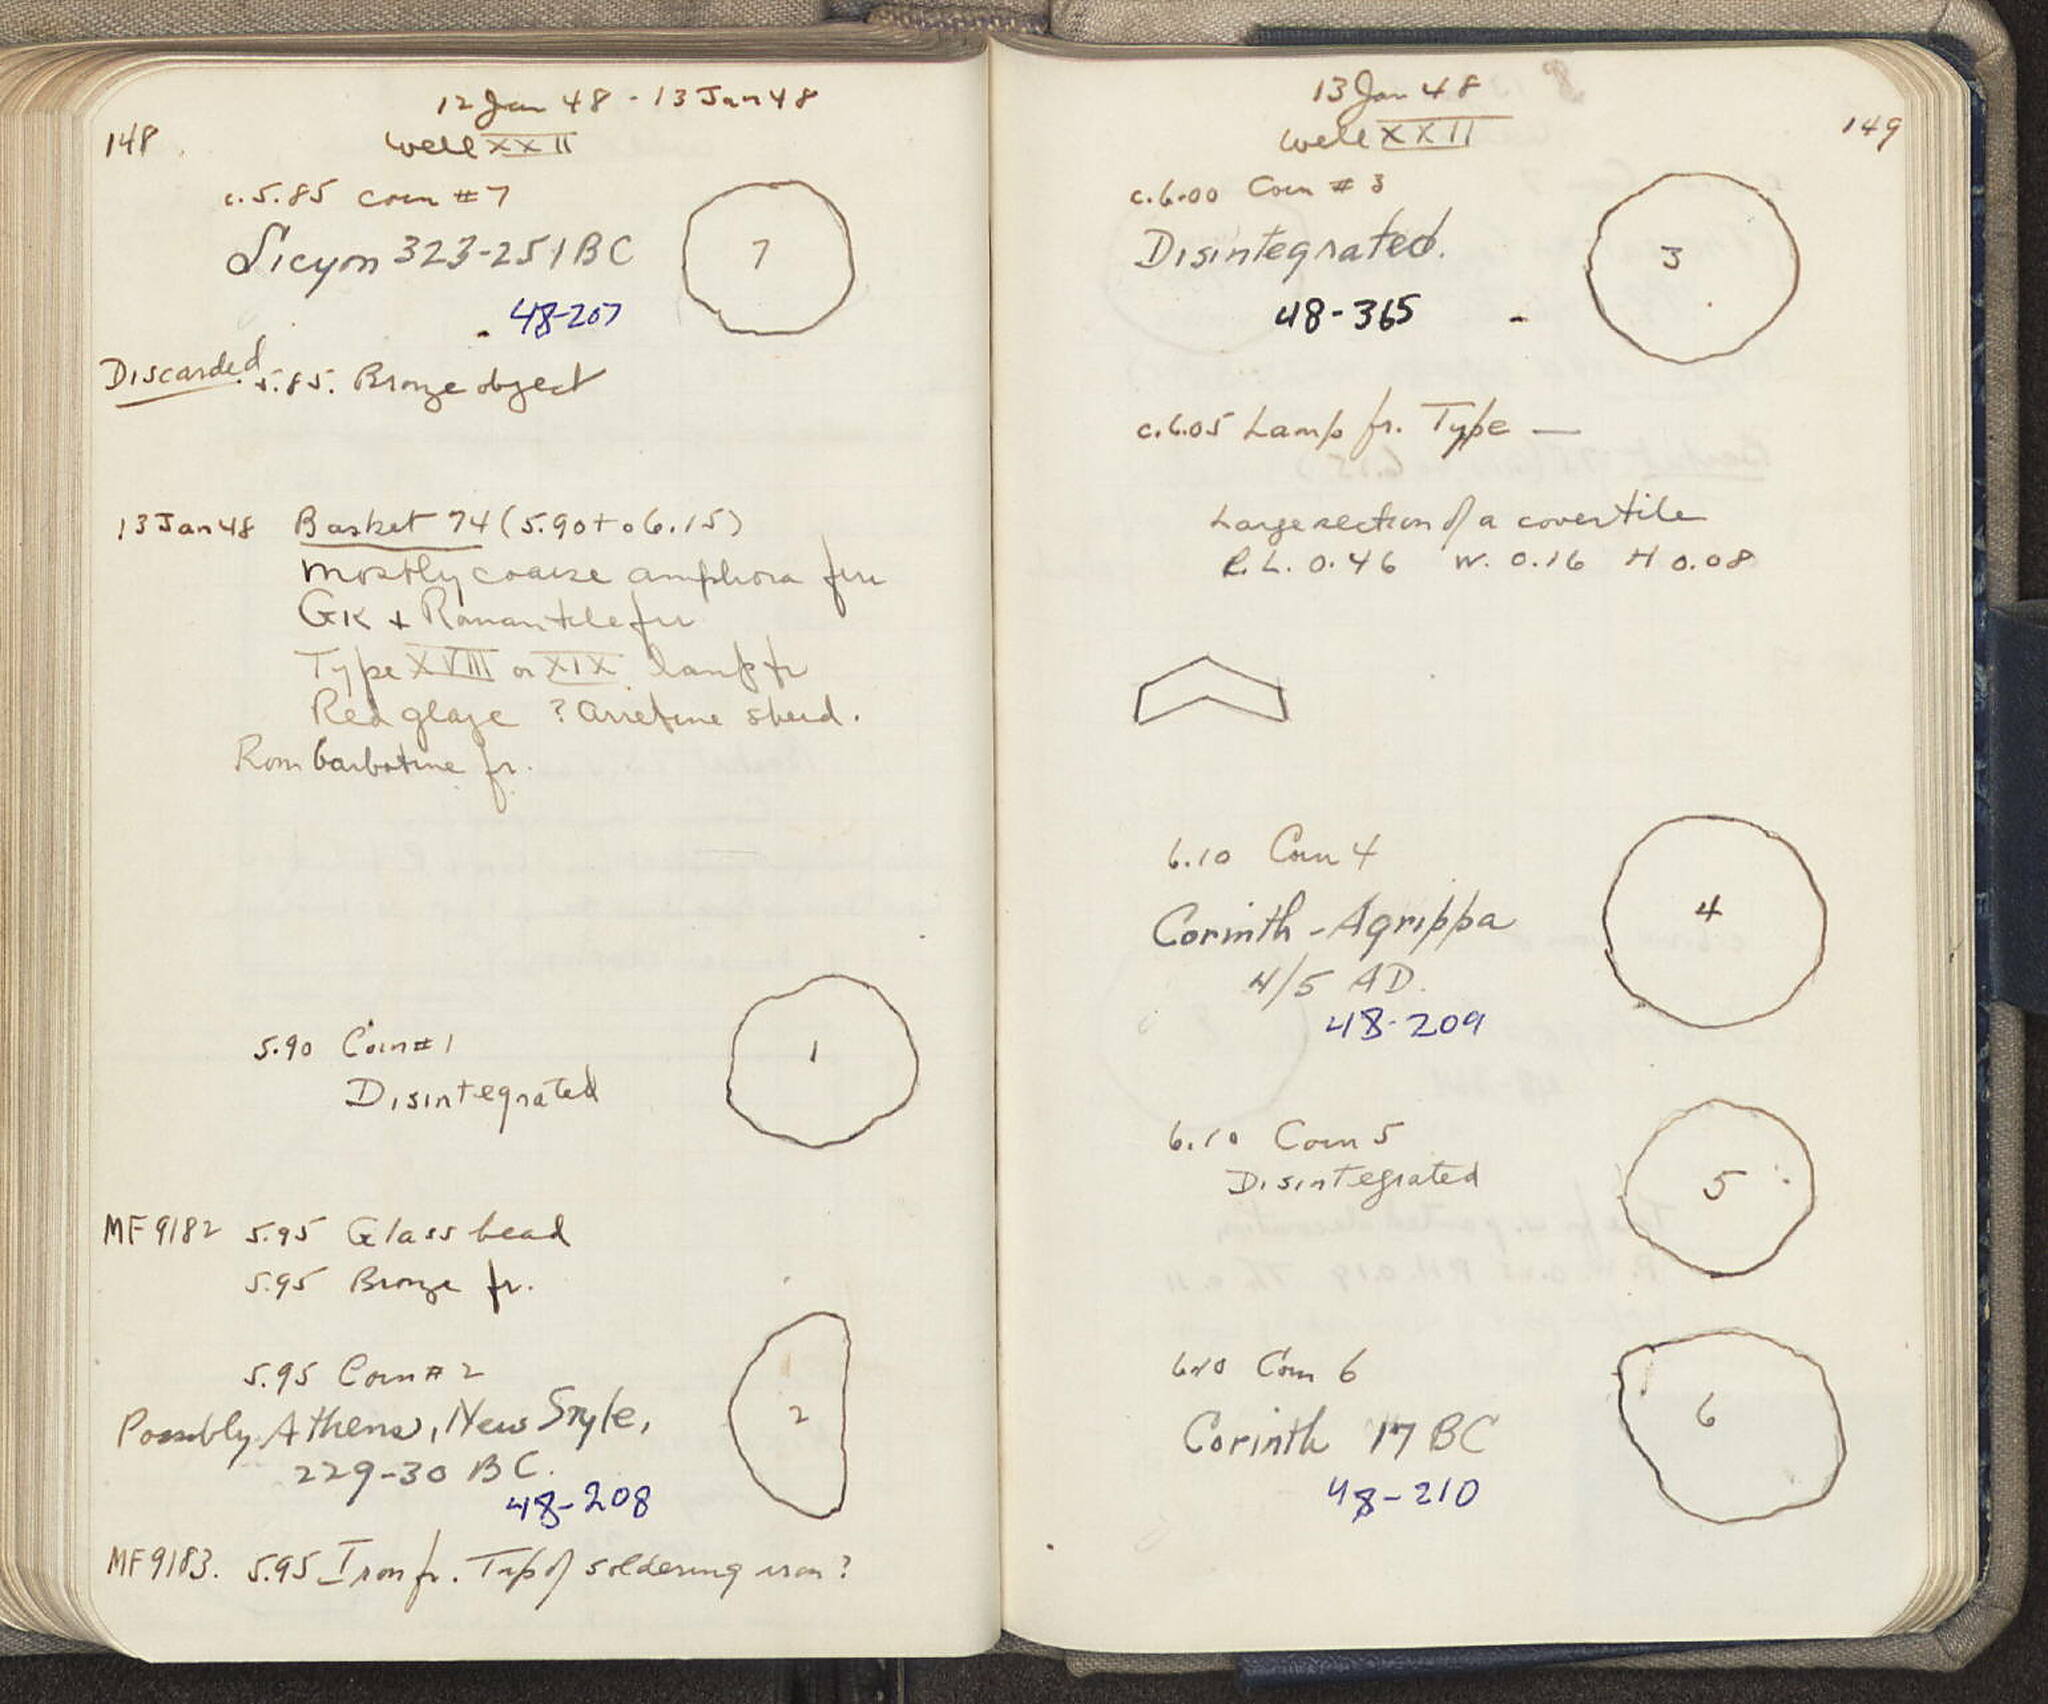 12 Jan 48 - 13 Jan 48
148
Well XXII
c. 5.85 coin #7
Sicyon 323-251 BC
7
48-207
Discarded
5.85. Bronze object
13 Jan 48 Basket 74 (5.90 to 6.15)
mostly coarse amphora frr
GK + Roman tile frr
Type XVIII or XIX lamp fr
Red glaze ? Arretine sherd.
Rom barbotine fr.
5.90 Coin #1
1
Disintegrated
MF 9182 5.95 Glass bead
5.95 Bronze fr.
5.95 Coin #2
2
Possibly Athens, New Style,
229-30 BC.
48-208
MF 9183. 5.95 Iron fr. Tip of soldering iron?
13 Jan 48
149
Well XXII
c. 6.00 Coin #3
Disintegrated.
3
48-365
c. 6.05 Lamp fr. Type —
Large section of a cover tile
P.L. 0.46 W. 0.16 H 0.08
6.10 Coin 4
4
Corinth - Agrippa
4/5 AD.
48-209
6.10 Coin 5
Disintegrated
5
6.10 Coin 6
6
Corinth 17 BC
48-210